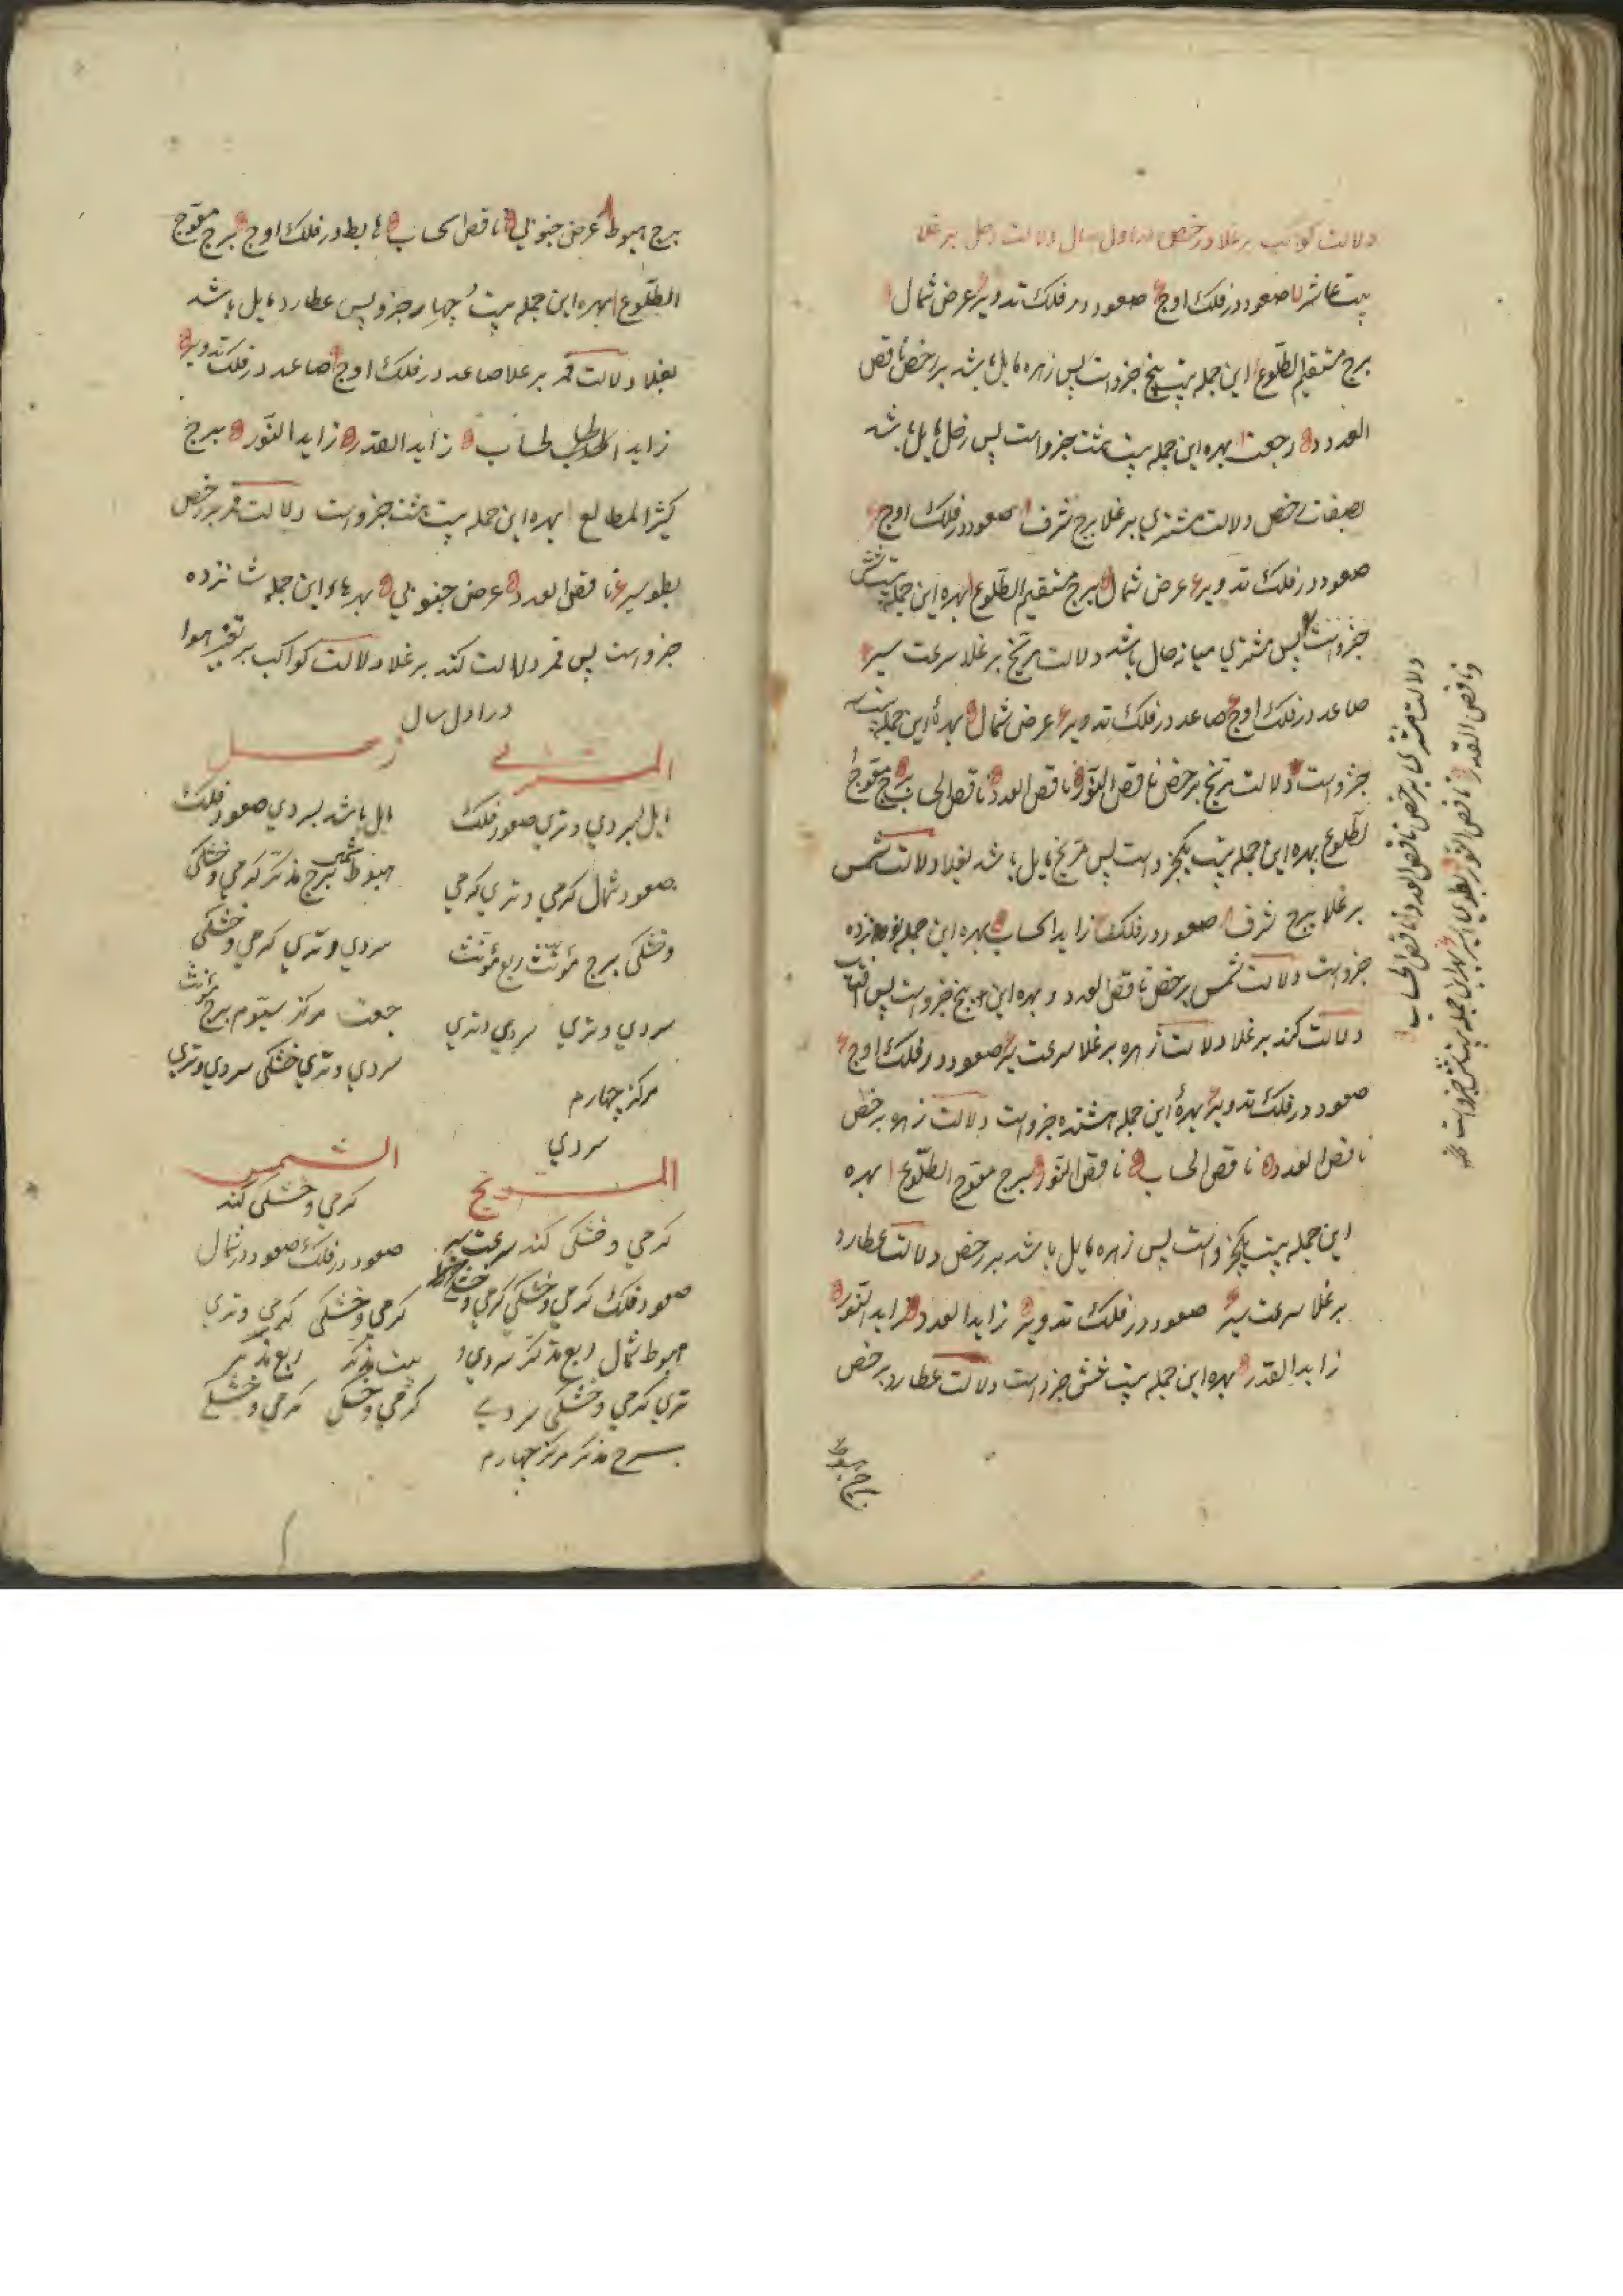 دلالت کواکب بر غلا و رخص در اول سال دلالت زحل بر غلا
بیت عاشر صعود در فلک اوج صعود در فلک تدویر عرض شمال
برج مستقیم الطلوع این جمله بیست پنج جزو است پس زهره مایل باشد بر رخص ناقص
العدد رجعت بهره این جمله بیست هشت جزو است پس زحل مایل باشد
بصفات رخص دلالت مشتری بر غلا برج شرف صعود در فلک اوج
صعود در فلک تدویر عرض شمال برج مستقیم الطلوع بهره این جمله بیست شش
جزو است پس مشتری میانه حال باشد دلالت مریخ بر غلا سرعت سیر
صاعد در فلک اوج صاعد در فلک تدویر عرض شمال بهرهٔ این جمله بیست سه
جزو است دلالت مریخ بر رخص ناقص النور ناقص العدد ناقص الحساب برج معوج
لطلوع بهره این جمله بیست یکجزو است پس مریخ مایل باشد بغلا دلالت شمس
بر غلا برج شرف صعود در فلک زاید الحساب بهره این جمله نوزده
جزو است دلالت شمس بر رخص ناقص العدد و بهره این پنج جزو است پس آفتاب
دلالت کند بر غلا دلالت زهره بر غلا سرعت سیر صعود در فلک اوج
صعود در فلک تدویر بهرهٔ این جمله هشتده جزو است دلالت زهره بر رخص
ناقص العدد ناقص الحساب ناقص النور برج معوج الطلوع بهره
این جمله بیست یکجزو است پس زهره مایل باشد بر رخص دلالت عطارد
بر غلا سرعت سیر صعود در فلک تدویر زاید العدد زاید النور
زاید القدر بهره این جمله بیست شش جزو است دلالت عطارد بر رخص
برج هبوط
دلالت مشتری بر رخص ناقص العدد ناقص الحساب
و ناقص القدر ناقص النور بطوی السیر بهره این جمله بیست شش جزو است
برج هبوط عرض جنوبی ناقص الحساب هابط در فلک اوج برج معوج
الطلوع بهره این جمله بیست چهار جزو پس عطارد مایل باشد
بغلا دلالت قمر بر غلا صاعد در فلک اوج صاعد در فلک تدویر
زاید لحساب زاید القدر زاید النور برج
کثیر المطالع بهره این جمله بیست هشت جزو است دلالت قمر بر رخص
بطو سیر ناقص العدد عرض جنوبی بهرهاء این جمله شانزده
جزو است پس قمر دلالت کند بر غلا دلالت کواکب بر تغیر هوا
در اول سال
المشتری
مایل بسردی و تری صعود فلک
صعود شمال کرمی و تری کرمی
و خشکی برج مؤنث ربع مؤنث
سردی و تری سردی و تری
مرکز چهارم
سردی
زحل
مایل باشد بسردی صعود فلک
هبوط شمس برج مذکر کرمی و خشکی
سردی و تری کرمی و خشکی
رجعت مرکز سیّوم برج مؤنث
سردی و تری خشکی سردی و تری
المریخ
کرمی و خشکی کند سرعت سیر
صعود فلک کرمی و خشکی کرمی و خشکی
هبوط شمال ربع مذکر سردی و
تری کرمی و خشکی سردی
برج مذکر مرکز چهارم
الشمس
کرمی و خشکی کند
صعود در فلک صعود در شمال
کرمی و خشکی کرمی و تری
بیت مذکر ربع مذکر
کرمی و خشکی کرمی و خشکی